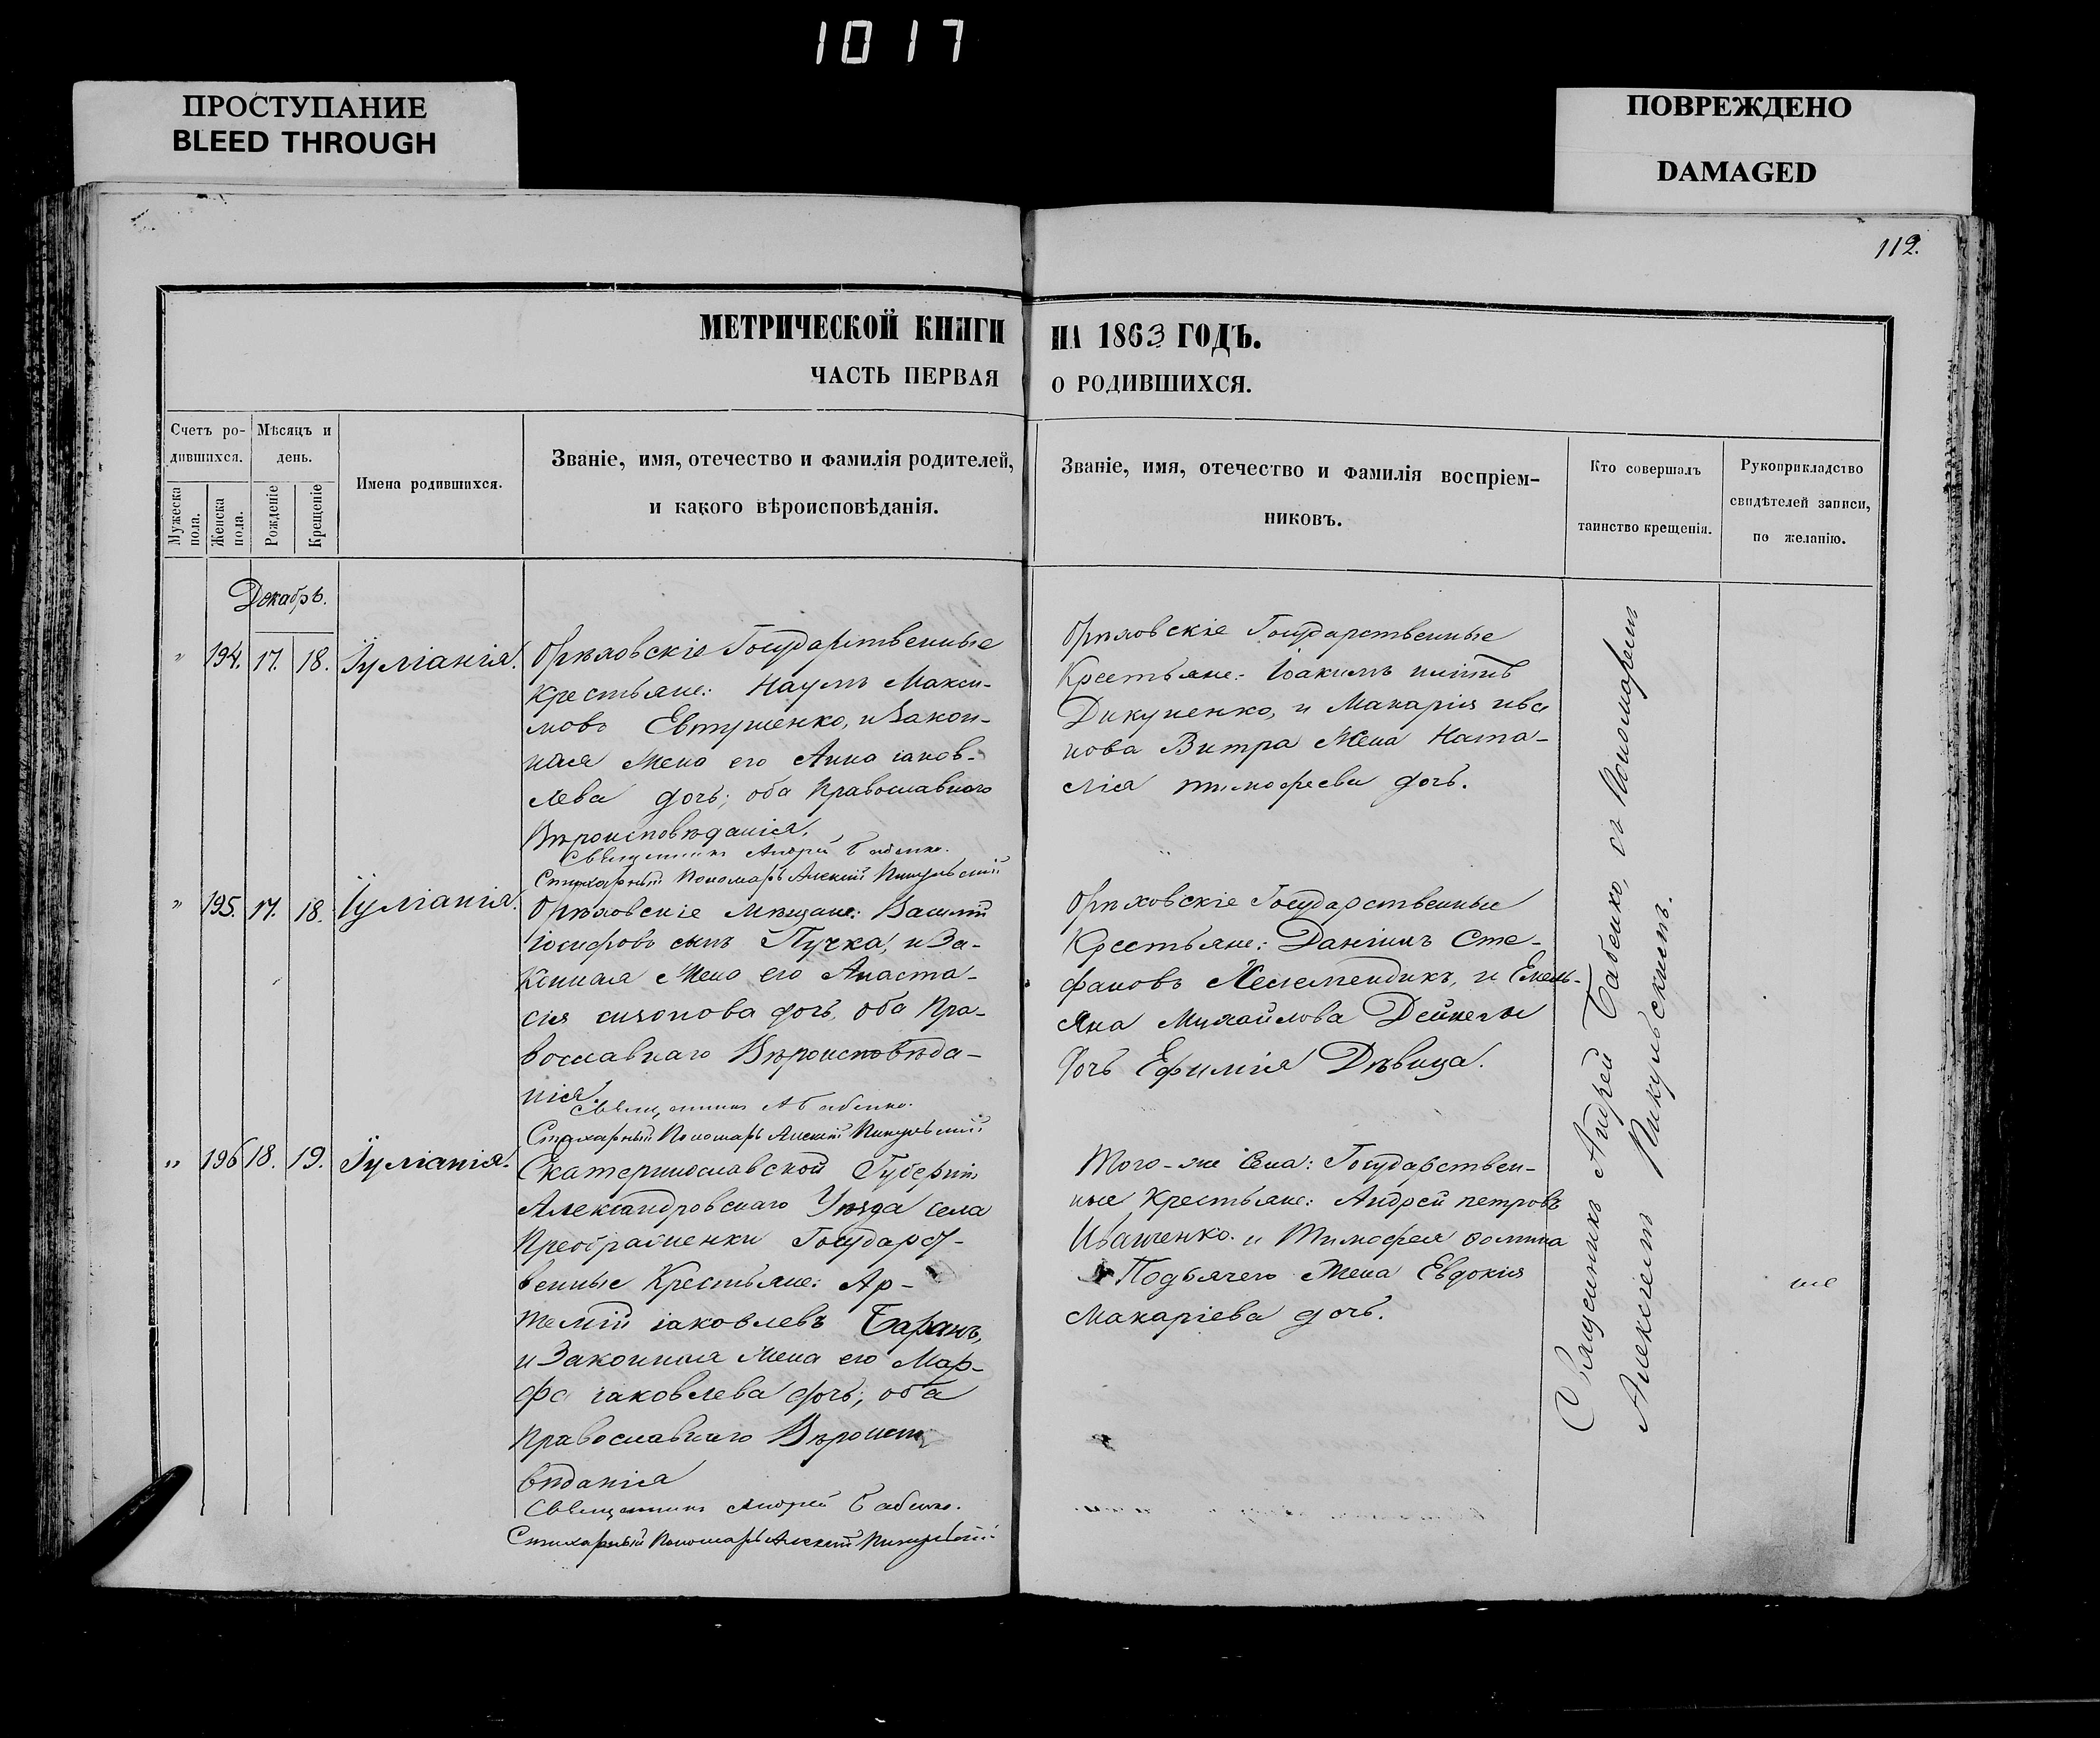 1017
ПРОСТУПАНИЕ
BLEED THROUGH
ПОВРЕЖДЕНО
DAMAGED
112.
МЕТРИЧЕСКОЙ КНИГИ НА 1863 ГОДЪ.
ЧАСТЬ ПЕРВАЯ О РОДИВШИХСЯ.
Счетъ ро-
дившихся.
Мужеска пола.
Женска пола.
Мѣсяцъ и
день.
Рожденіе
Крещеніе
Имена родившихся.
Званіе, имя, отечество и фамилія родителей,
и какого вѣроисповѣданія.
Званіе, имя, отечество и фамилія воспріем-
никовъ.
Кто совершалъ
таинство крещенія.
Рукоприкладство
свидѣтелей записи,
по желанію.
Декабрь.
" 194. 17. 18. Іуліанія.
Орѣховскіе Государственные
Крестьяне: Наумъ Макси-
мовъ Евтушенко, и Закон-
ная Жена его Анна іаков-
лева дочь; оба Православнаго
Вѣроисповѣданія.
Священникъ Андрей Бабенко.
Стихарный Пономарь Алексій Пикульскій
Орѣховскіе Государственные
Крестьяне: Іоакимъ
Дикуненко, и Макарія ива
нова Витра Жена Ната-
лія тимофеева дочь.
" 195. 17. 18. Іуліанія.
Орѣховскіе Мѣщане: Василій
іосифовъ сынъ Пучка, и За-
конная Жена его Анаста-
сія дочь, оба Пра-
вославнаго Вѣроисповѣда-
нія.
Священникъ А Бабенко.
Стихарный Пономарь Алексій Пикульскій
Орѣховскіе Государственные
Крестьяне: Даніилъ Сте-
фановъ и Емель-
яна Михайлова Дейнеги
дочь Ефимія Дѣвица.
" 196 18. 19. Іуліанія.
Екатеринославской Губерніи
Александровскаго Уѣзда села
Преображенки Государст-
венные Крестьяне: Ар-
темій іаковлевъ Баранъ,
и Законная Жена его Мар-
фа іаковлева дочь; оба
Православнаго Вѣроиспо
вѣданія
Священникъ Андрей Бабенко.
Стихарный Пономарь Алексій Пикульскій
Того-же Села: Государствен-
ные Крестьяне: Андрей петровъ
Иванченко. и Тимофея фомина
Подьячего Жена Евдокія
Макаріева дочь.
Священникъ Андрей Бабенко, съ Пономаремъ
Алексіемъ Пикульскимъ.